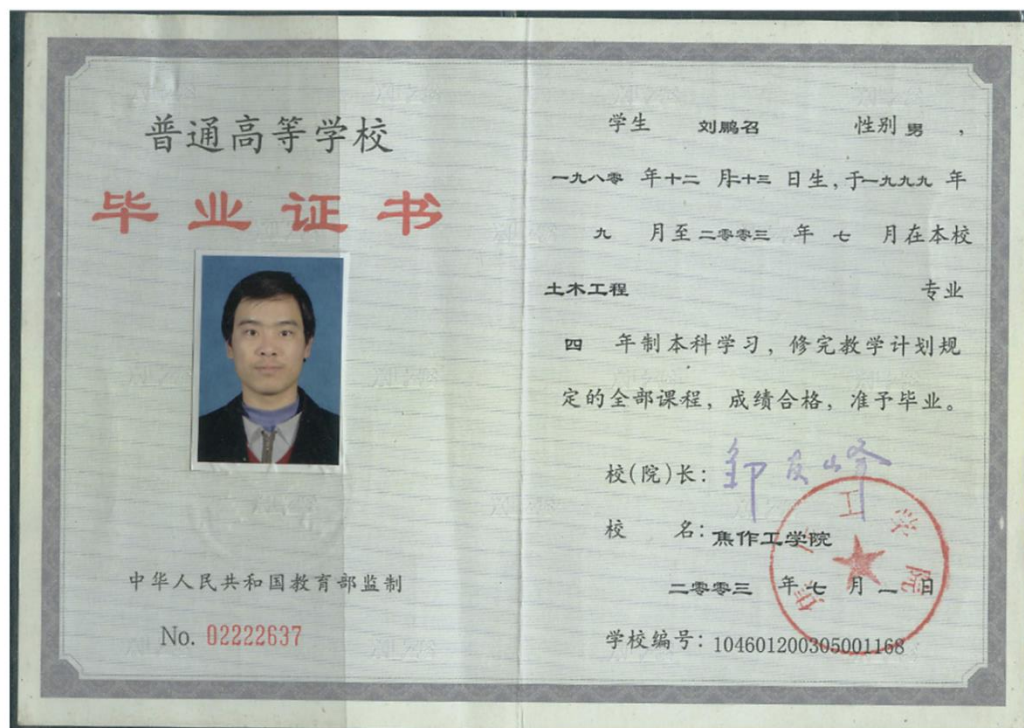 普通高等学校
毕业证书
中华人民共和国教育部监制
No. 02222637
学生 刘鹏召 性别 男 ,
一九八零 年 十二 月 二十三 日生，于 一九九九 年
九 月至 二零零三 年 七 月在本校
土木工程 专业
四 年制本科学习，修完教学计划规
定的全部课程，成绩合格，准予毕业。
校(院)长：邹友峰
校 名：焦作工学院
二零零三 年 七 月 一 日
学校编号：104601200305001168
焦作工学院